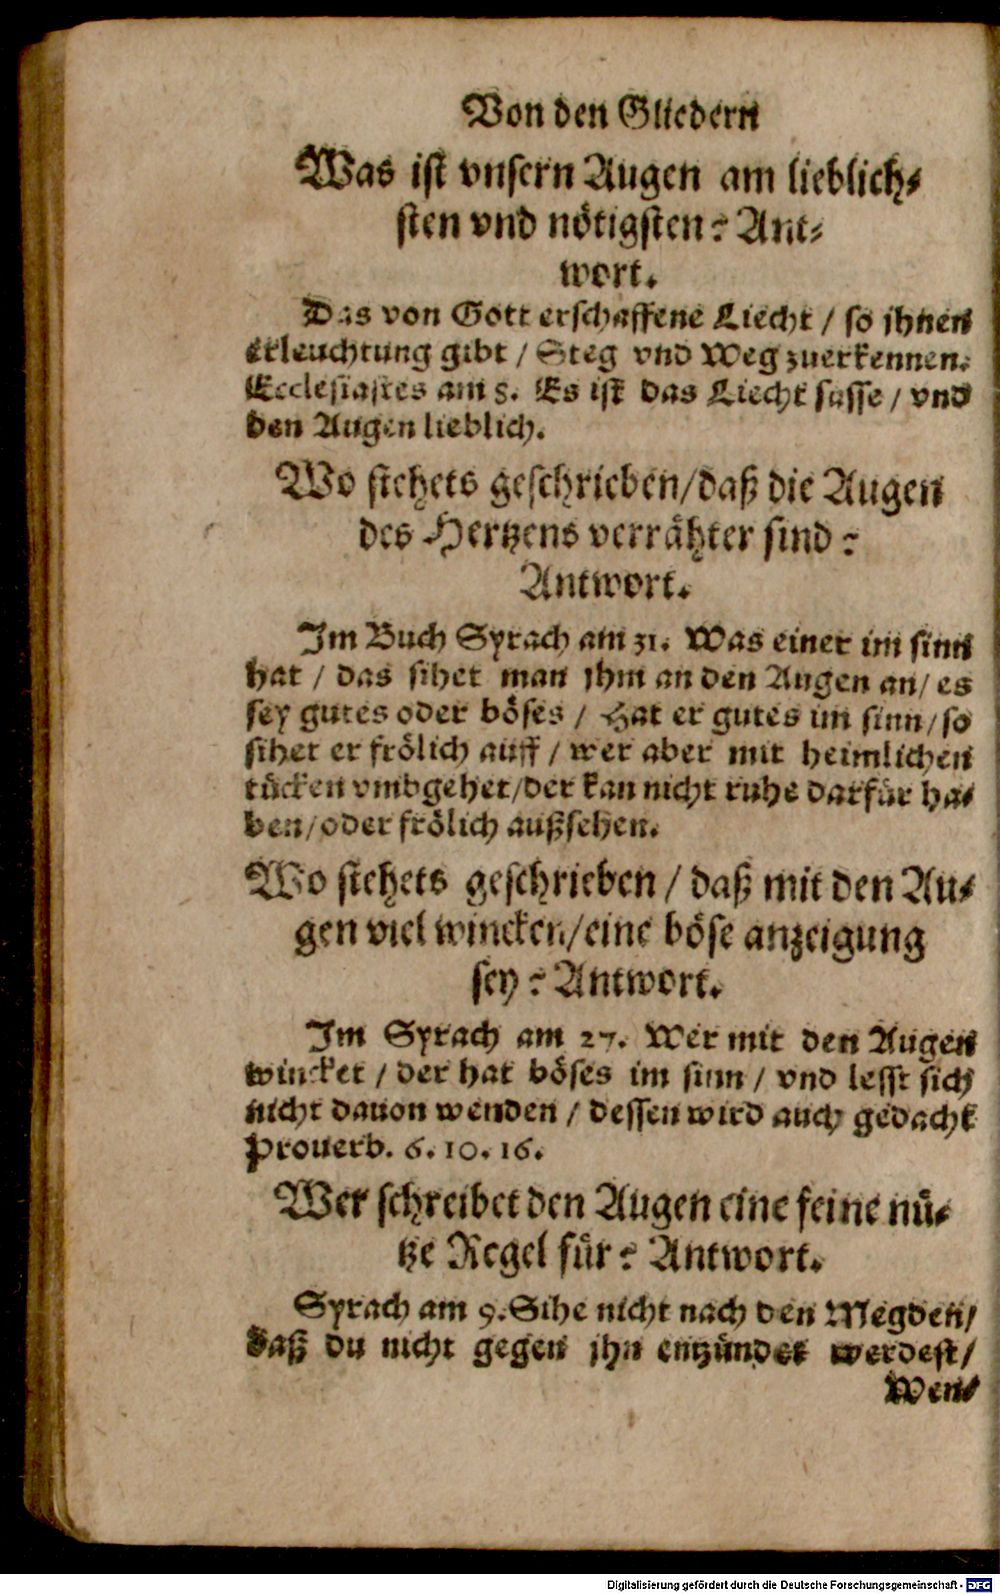 Von den Gliedern
Was ist vnsern Augen am lieblich-
sten vnd nötigsten? Ant-
wort.
Das von Gott erschaffene Liecht / so jhnen
erleuchtung gibt / Steg vnd Weg zuerkennen.
Ecclesiastes am 8. Es ist das Liecht susse / vnd
den Augen lieblich.
Wo stehets geschrieben/daß die Augen
des Hertzens verrähter sind?
Antwort.
Im Buch Syrach am 31. Was einer im sinn
hat / das sihet man jhm an den Augen an/ es
sey gutes oder böses / Hat er gutes im sinn/so
sihet er frölich auff / wer aber mit heimlichen
tücken vmbgehet/der kan nicht ruhe darfür ha-
ben/oder frölich außsehen.
Wo stehets geschrieben / daß mit den Au-
gen viel wincken/eine böse anzeigung
sey? Antwort.
Im Syrach am 27. Wer mit den Augen
wincket / der hat böses im sinn / vnd lesst sich
nicht dauon wenden / dessen wird auch gedacht
Prouerb. 6. 10. 16.
Wer schreibet den Augen eine feine nü-
tze Regel für? Antwort.
Syrach am 9. Sihe nicht nach den Megden/
daß du nicht gegen jhn entzündet werdest/
Wen-
Digitalisierung gefördert durch die Deutsche Forschungsgemeinschaft - DFG